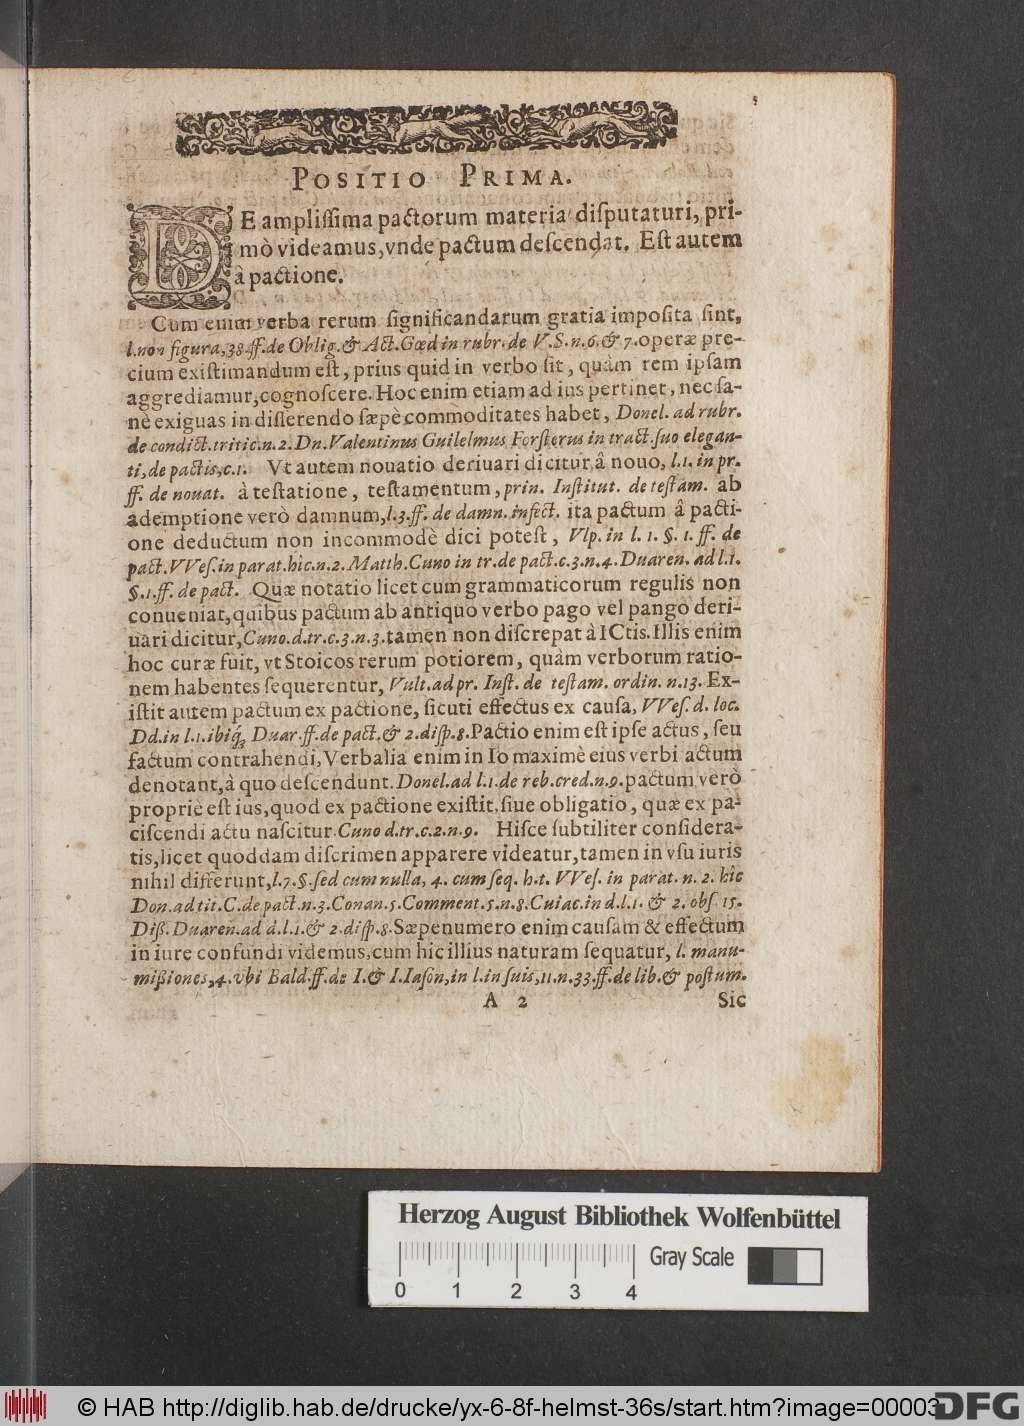 POSITIO PRIMA.
DE ampliſſima pactorum materia diſputaturi, pri-
mò videamus, vnde pactum deſcendat. Eſt autem
â pactione.
Cum enim verba rerum ſignificandarum gratia impoſita ſint,
l. non figura, 38. ff. de Oblig. & Act. Gœd in rubr. de V. S. n. 6. & 7. operæ pre-
cium exiſtimandum eſt, prius quid in verbo ſit, quàm rem ipſam
aggrediamur, cognoſcere. Hoc enim etiam ad ius pertinet, nec ſa-
nè exiguas in diſſerendo ſæpè commoditates habet, Donel. ad rubr.
de condict. tritic. n. 2. Dn. Valentinus Guilelmus Forſterus in tract. ſuo elegan-
ti, de pactis, c. 1. Vt autem nouatio deriuari dicitur â nouo, l. 1. in pr.
ff. de nouat. à teſtatione, teſtamentum, prin. Inſtitut. de teſtam. ab
ademptione verò damnum, l. 3. ff. de damn. infect. ita pactum â pacti-
one deductum non incommodè dici poteſt, Vlp. in l. 1. §. 1. ff. de
pact. VVeſ. in parat. hic. n. 2. Matth. Cuno in tr. de pact. c. 3. n. 4. Duaren. ad l. 1.
§. 1. ff. de pact. Quæ notatio licet cum grammaticorum regulis non
conueniat, quibus pactum ab antiquo verbo pago vel pango deri-
uari dicitur, Cuno. d. tr. c. 3. n. 3. tamen non diſcrepat à ICtis. Illis enim
hoc curæ fuit, vt Stoicos rerum potiorem, quàm verborum ratio-
nem habentes ſequerentur, Vult. ad pr. Inſt. de teſtam. ordin. n. 13. Ex-
iſtit autem pactum ex pactione, ſicuti effectus ex cauſa, VVeſ. d. loc.
Dd. in l. 1. ibiq́; Duar. ff. de pact. & 2. diſp. 8. Pactio enim eſt ipſe actus, ſeu
factum contrahendi, Verbalia enim in Io maximè eius verbi actum
denotant, à quo deſcendunt. Donel. ad l. 1. de reb. cred. n. 9. pactum verò
propriè eſt ius, quod ex pactione exiſtit, ſiue obligatio, quæ ex pa-
ciſcendi actu naſcitur. Cuno d. tr. c. 2. n. 9. Hiſce ſubtiliter conſidera-
tis, licet quoddam diſcrimen apparere videatur, tamen in vſu iuris
nihil differunt, l. 7. §. ſed cum nulla, 4. cum ſeq. h. t. VVeſ. in parat. n. 2. hic
Don. ad tit. C. de pact. n. 3. Conan. 5. Comment. 5. n. 8. Cuiac. in d. l. 1. & 2. obſ. 15.
Diß. Duaren. ad d. l. 1. & 2. diſp. 8. Sæpenumero enim cauſam & effectum
in iure confundi videmus, cum hic illius naturam ſequatur, l. manu-
mißiones, 4. vbi Bald. ff. de I. & I. Iaſon, in l. in ſuis, 11. n. 33. ff. de lib. & poſtum.
A 2 Sic
Herzog August Bibliothek Wolfenbüttel
Gray Scale
0 1 2 3 4
© HAB http://diglib.hab.de/drucke/yx-6-8f-helmst-36s/start.htm?image=00003
DFG